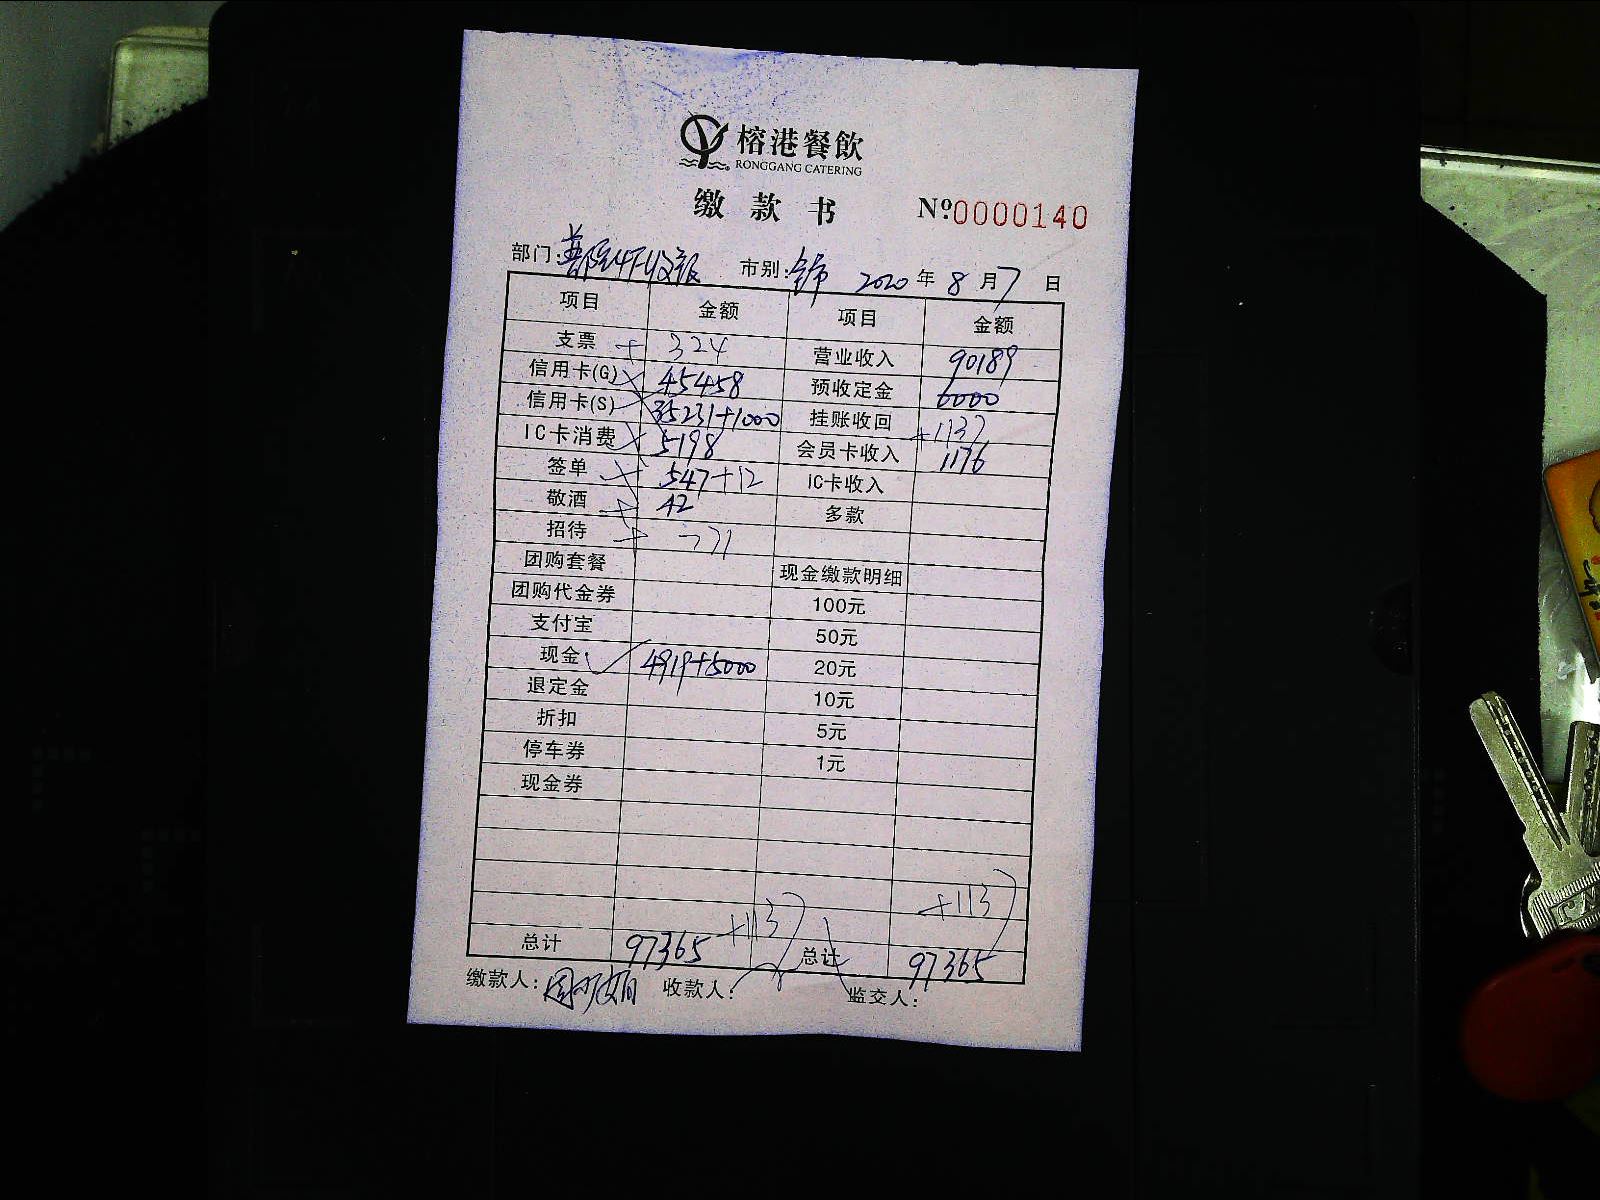 榕港餐飲
RONGGANG CATERING
缴款书 Nº:0000140
部门: 市别: 全市 2020年8月7日
项目 金额 项目 金额
支票 + 324 营业收入 90189
信用卡(G) 45458 预收定金 6000
信用卡(S) 35231+1000 挂账收回 +1137
IC卡消费 5198 会员卡收入 1176
签单 547+12 IC卡收入
敬酒 42 多款
招待
团购套餐 现金缴款明细
团购代金券 100元
支付宝 50元
现金 4919+5000 20元
退定金 10元
折扣 5元
停车券 1元
现金券
+1137 +1137
总计 97365 总计 97365
缴款人: 收款人: 监交人: